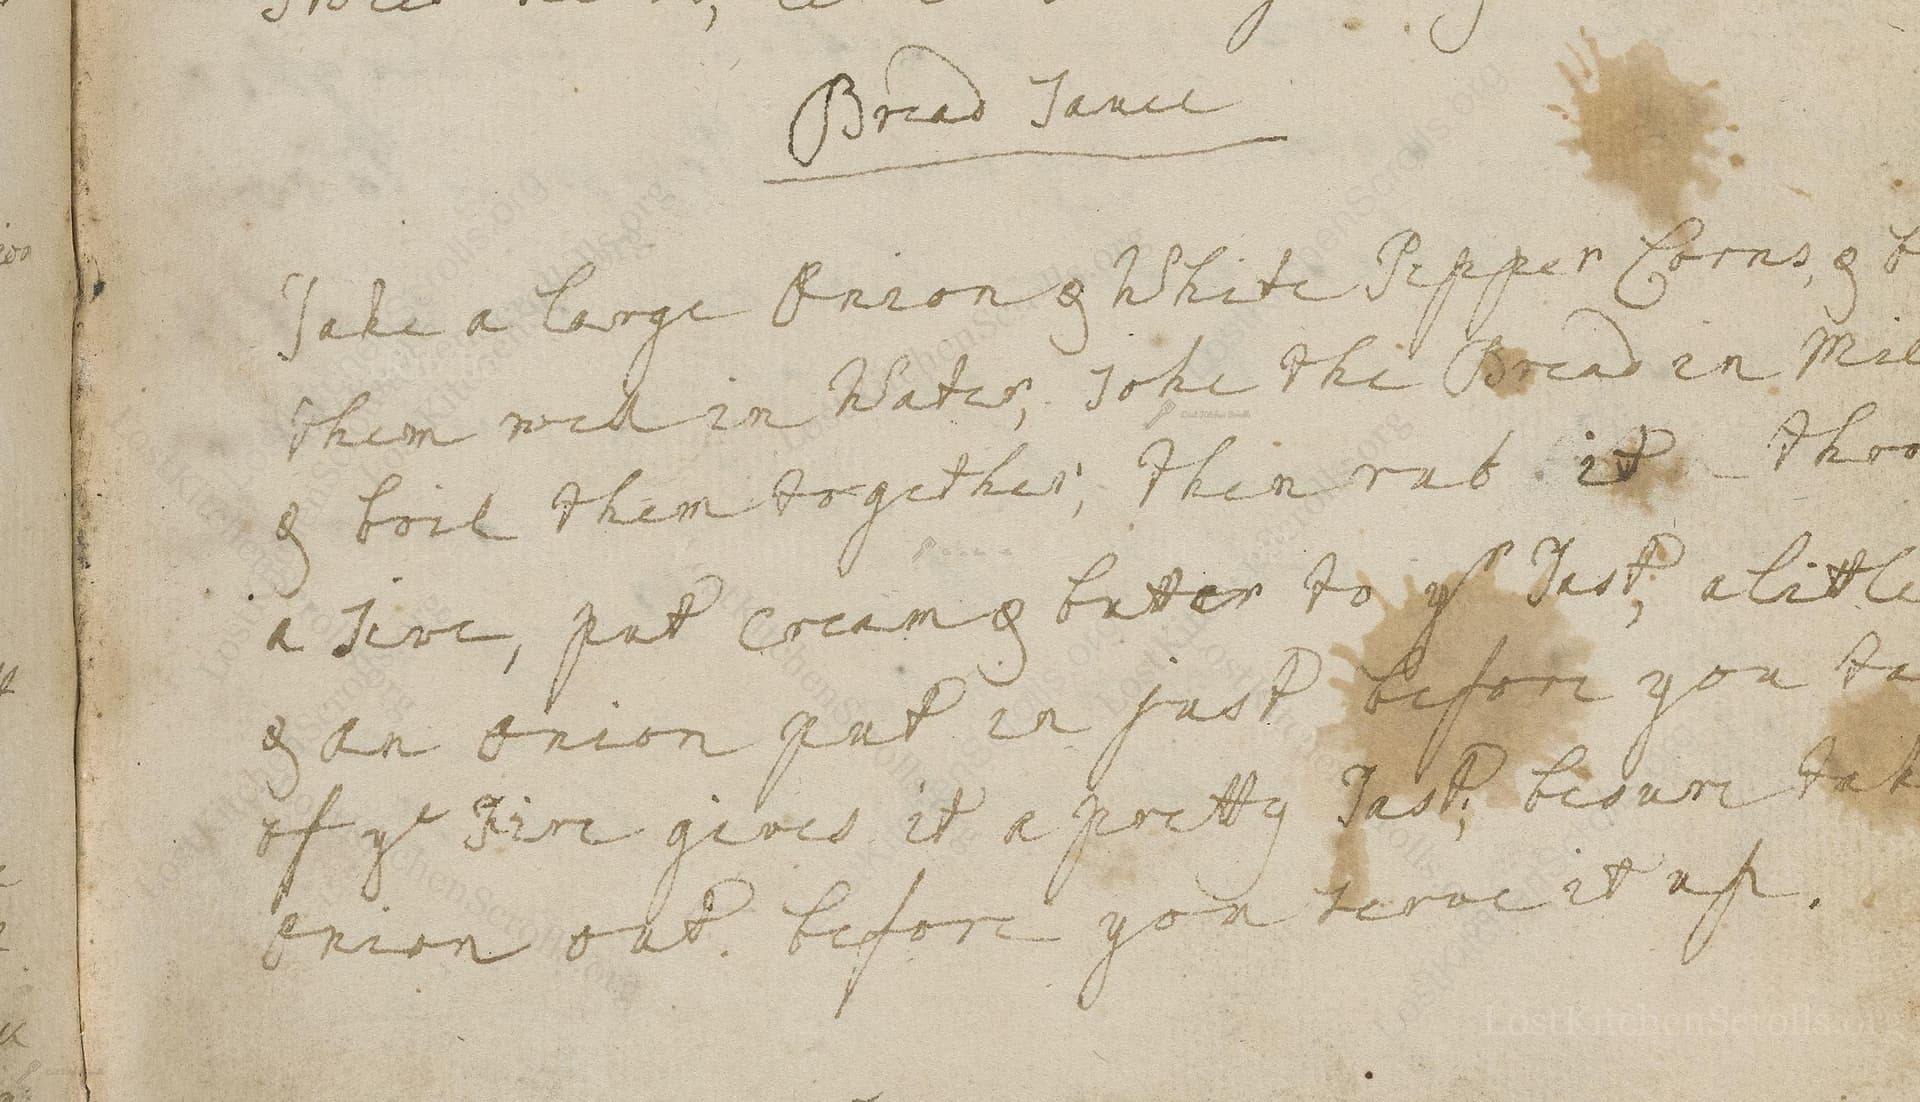 Bread Sauce
Take a large Onion & White Pepper Corns, & b
them well in Water, soke the Bread in Mil
& boil them together, then rub it thro
a Sive, put Cream & butter to yr Tast, a little
& an Onion put in just before you ta
of ye Fire gives it a pretty Tast, besure tak
Onion out before you serve it up.
LostKitchenScrolls.org